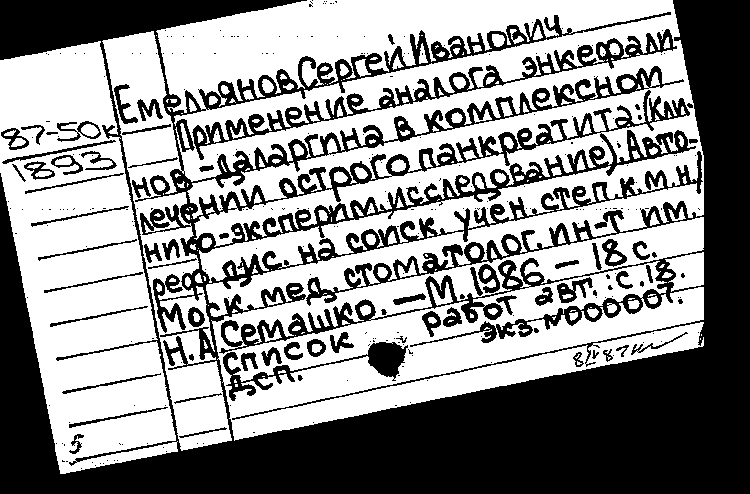 Емельянов, Сергей Иванович.
87-50к
1893
Применение аналога энкефали-
нов - даларгина в комплексном
лечении острого панкреатита: (Кли-
нико-эксперим. исследование): Авто-
реф. дис. на соиск. учен. степ. к.м.н./
Моск. мед. стоматолог. ин-т им.
Н.А. Семашко. — М., 1986. — 18 с.
список работ авт.: с. 18.
Дсп. экз. N000007.
8 IV 87
5